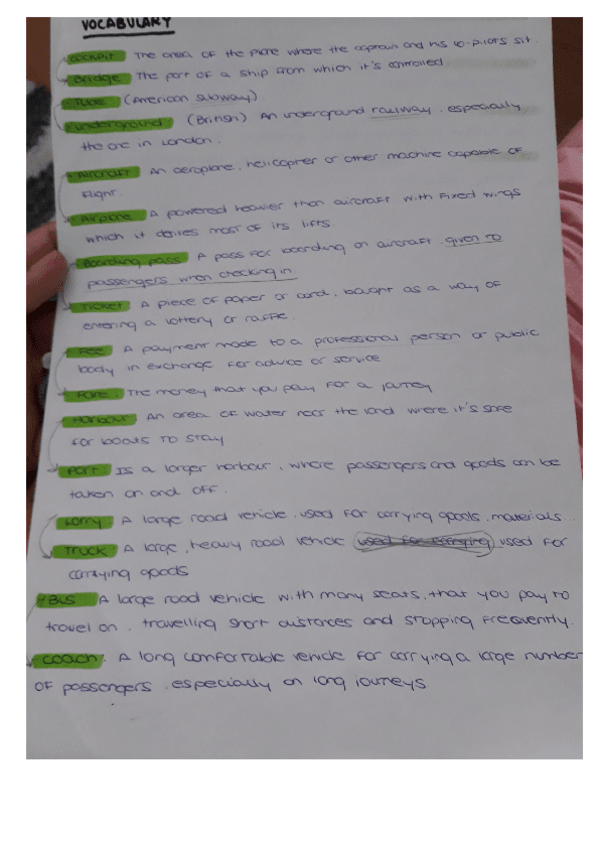 VOCABULARY
Cockpit The area of the plane where the captain and his co-pilots sit.
Bridge The part of a ship from which it's controlled
Tube (American subway).
Underground (British) An underground railway, especially
the one in London.
Aircraft An aeroplane, helicopter or other machine capable of
flight.
Airplane A powered heavier than aircraft with fixed wings
which it derives most of its lifts
Boarding pass A pass for boarding an aircraft, given to
passengers when checking in.
Ticket A piece of paper or card, bought as a way of
entering a lottery or raffle.
Fee A payment made to a professional person or public
body in exchange for advice or service
Fare. The money that you pay for a journey
Harbour An area of water near the land where it's safe
for boats to stay
Port Is a larger harbour, where passengers and goods can be
taken on and off.
Lorry A large road vehicle, used for carrying goods, materials...
Truck A large, heavy road vehicle used for carrying used for
carrying goods
Bus A large road vehicle with many seats, that you pay to
travel on, travelling short distances and stopping frequently.
Coach. A long comfortable vehicle for carrying a large number
of passengers, especially on long journeys.